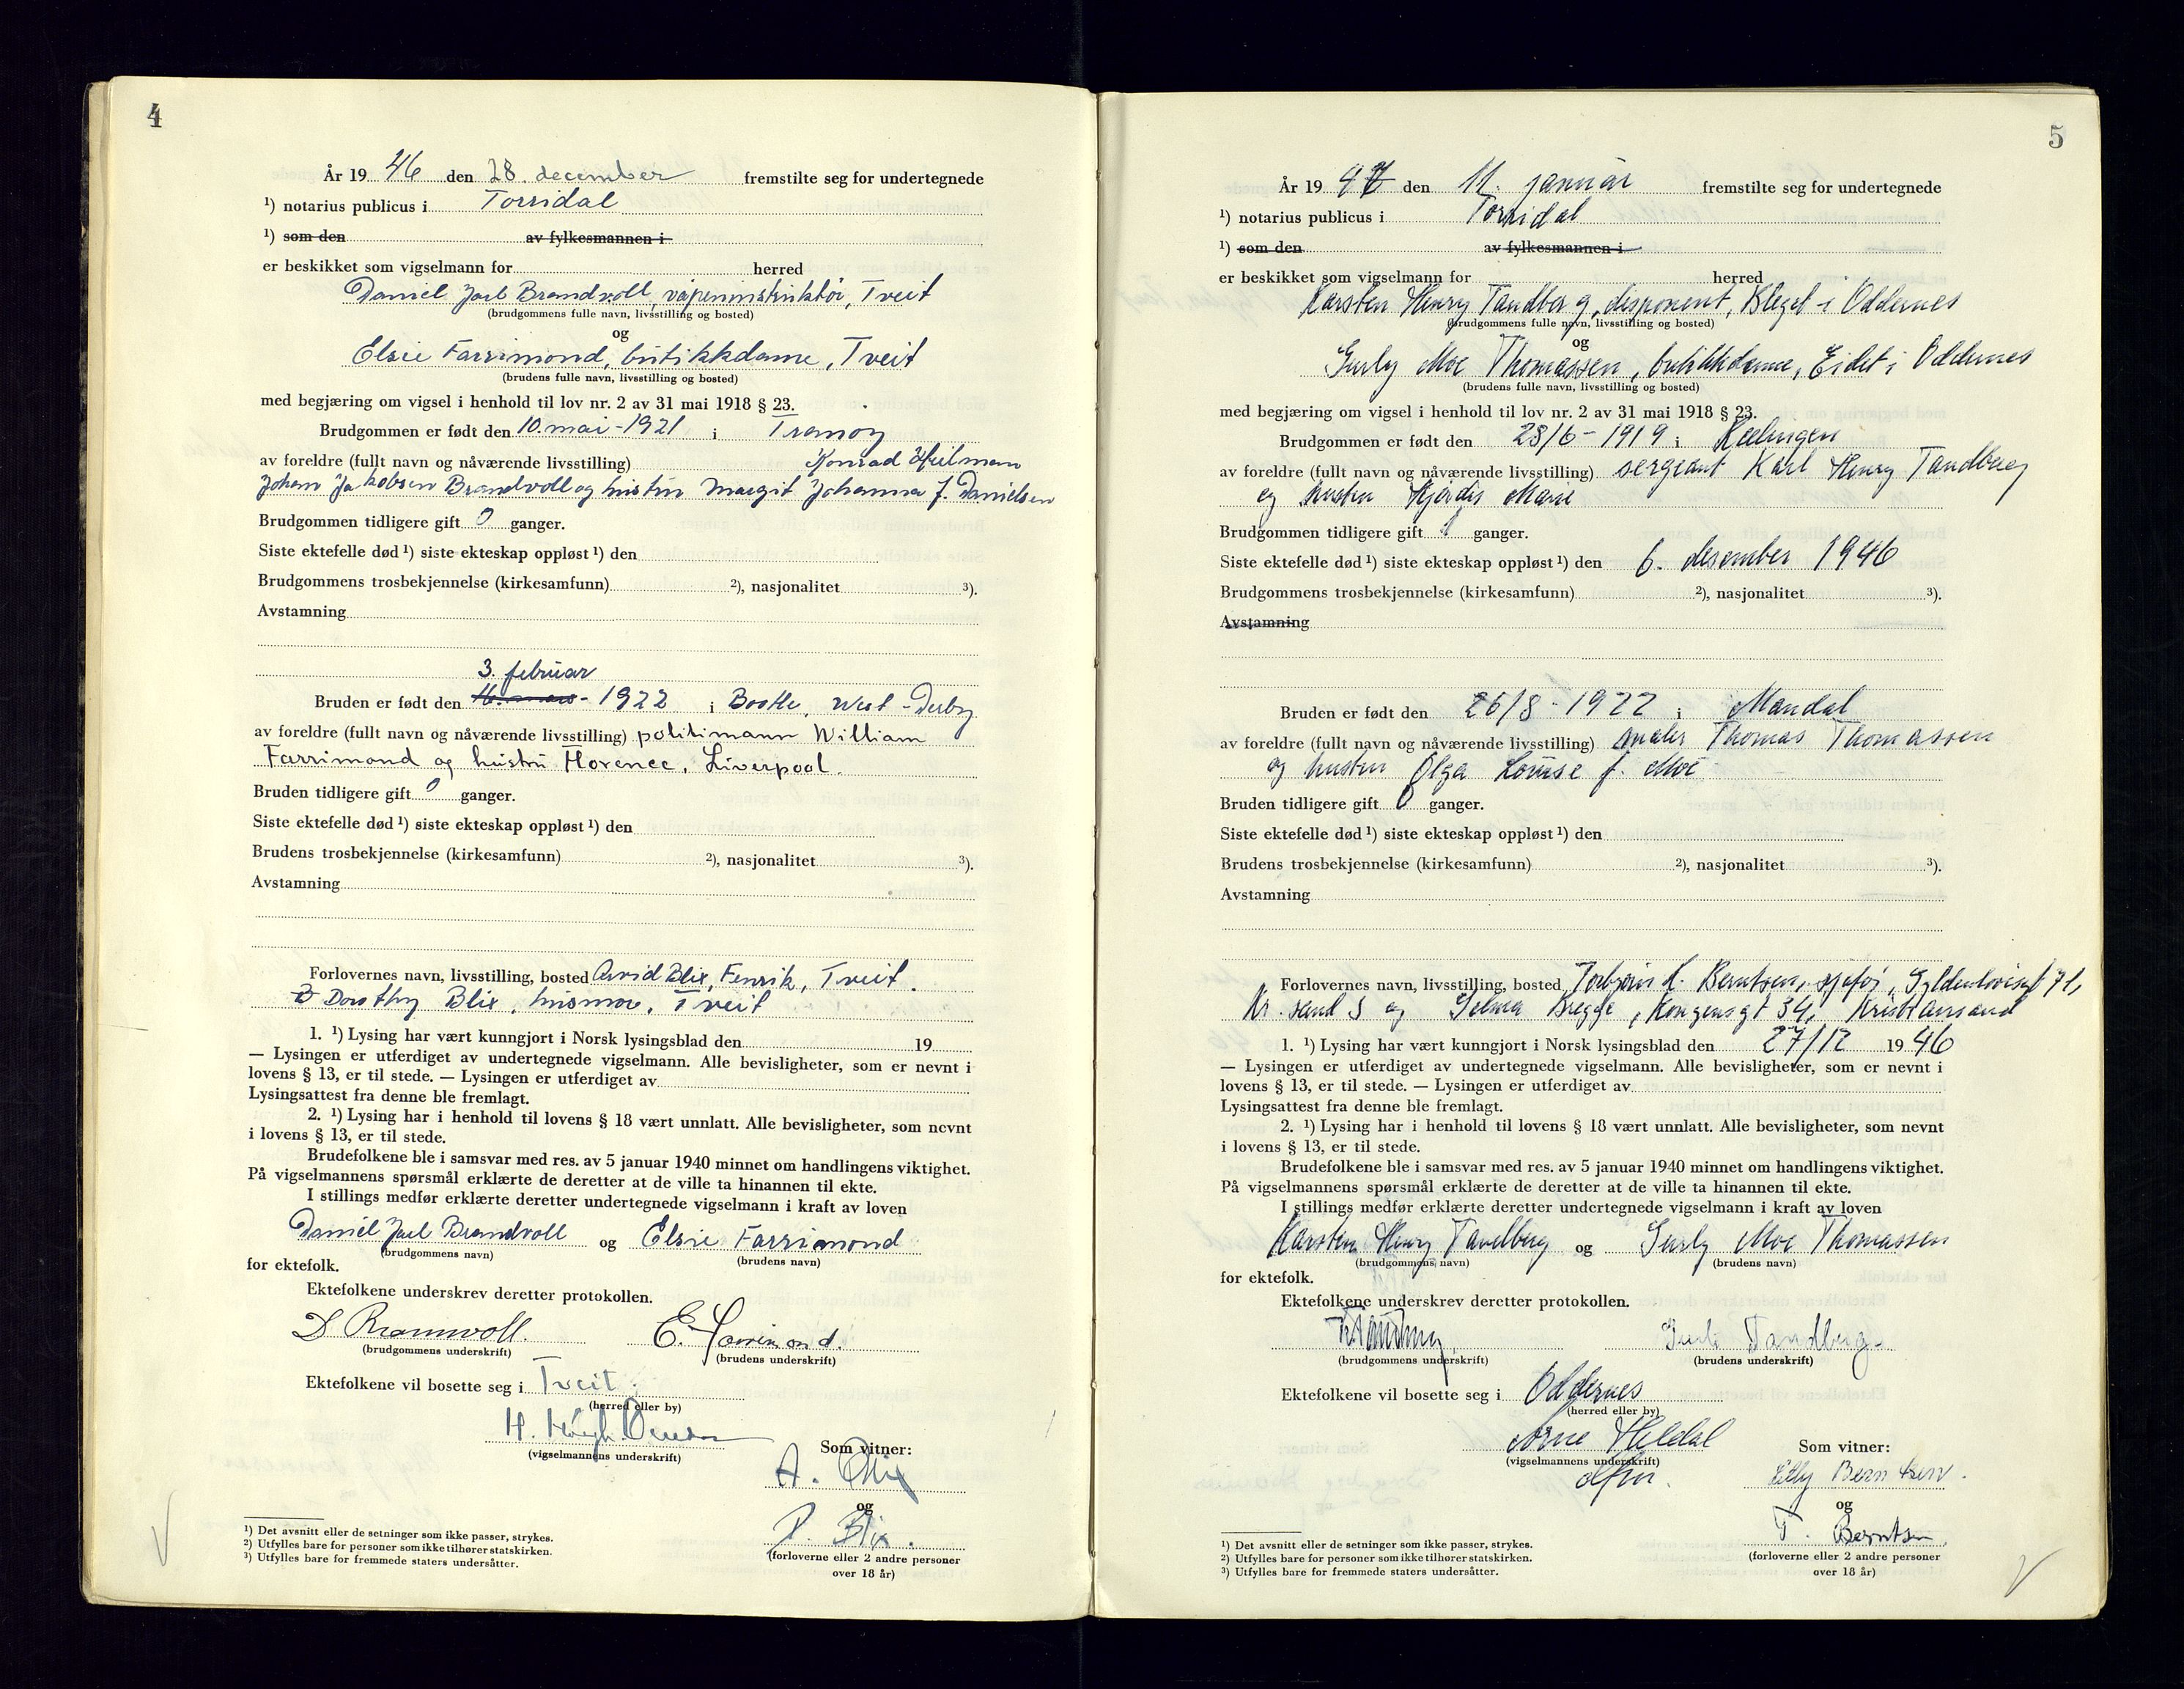 4
År 19 46 den 28. december fremstilte seg for undertegnede
¹) notarius publicus i Torridal
¹) som den av fylkesmannen i
er beskikket som vigselmann for herred
Daniel Jarl Brandvoll, våpeninstruktör, Tveit
(brudgommens fulle navn, livsstilling og bosted)
og
Elsie Farrimond, butikkdame, Tveit
(brudens fulle navn, livsstilling og bosted)
med begjæring om vigsel i henhold til lov nr. 2 av 31 mai 1918 § 23.
Brudgommen er født den 10. mai - 1921 i Tranøy
av foreldre (fullt navn og nåværende livsstilling) Konrad Hilman
Johan Jakobsen Brandvoll og hustru Margit Johanna f. Danielsen
Brudgommen tidligere gift 0 ganger.
Siste ektefelle død ¹) siste ekteskap oppløst ¹) den
Brudgommens trosbekjennelse (kirkesamfunn) ²), nasjonalitet ³).
Avstamning
3. februar
Bruden er født den - 1922 i Bootle, West-Derby
av foreldre (fullt navn og nåværende livsstilling) politimann William
Farrimond og hustru Florence, Liverpool.
Bruden tidligere gift 0 ganger.
Siste ektefelle død ¹) siste ekteskap oppløst ¹) den
Brudens trosbekjennelse (kirkesamfunn) ²), nasjonalitet ³).
Avstamning
Forlovernes navn, livsstilling, bosted Arvid Blix, Fenrik, Tveit.
Dorothy Blix, husmor, Tveit
1. ¹) Lysing har vært kunngjort i Norsk lysingsblad den 19
— Lysingen er utferdiget av undertegnede vigselmann. Alle bevisligheter, som er nevnt i
lovens § 13, er til stede. — Lysingen er utferdiget av
Lysingsattest fra denne ble fremlagt.
2. ¹) Lysing har i henhold til lovens § 18 vært unnlatt. Alle bevisligheter, som nevnt
i lovens § 13, er til stede.
Brudefolkene ble i samsvar med res. av 5 januar 1940 minnet om handlingens viktighet.
På vigselmannens spørsmål erklærte de deretter at de ville ta hinannen til ekte.
I stillings medfør erklærte deretter undertegnede vigselmann i kraft av loven
Daniel Jarl Brandvoll og Elsie Farrimond
(brudgommens navn) (brudens navn)
for ektefolk.
Ektefolkene underskrev deretter protokollen.
D Brannvoll. E. Farrimond.
(brudgommens underskrift) (brudens underskrift)
Ektefolkene vil bosette seg i Tveit.
(herred eller by)
H.
(vigselmannens underskrift)
Som vitner:
A. Blix
og
D. Blix.
(forloverne eller 2 andre personer
over 18 år)
¹) Det avsnitt eller de setninger som ikke passer, strykes.
²) Utfylles bare for personer som ikke tilhører statskirken.
³) Utfylles bare for fremmede staters undersåtter.
5
År 19 47 den 11. januar fremstilte seg for undertegnede
¹) notarius publicus i Torridal
¹) som den av fylkesmannen i
er beskikket som vigselmann for herred
Karsten Henry Tandberg, disponent, Bleget i Oddernes
(brudgommens fulle navn, livsstilling og bosted)
og
Gurly Moe Thomassen, butikkdame, Eidet i Oddernes
(brudens fulle navn, livsstilling og bosted)
med begjæring om vigsel i henhold til lov nr. 2 av 31 mai 1918 § 23.
Brudgommen er født den 28/6 - 1919 i
av foreldre (fullt navn og nåværende livsstilling) sergeant Karl Henry Tandberg
og hustru Hjørdis Marie
Brudgommen tidligere gift 1 ganger.
Siste ektefelle død ¹) siste ekteskap oppløst ¹) den 6. desember 1946
Brudgommens trosbekjennelse (kirkesamfunn) ²), nasjonalitet ³).
Avstamning
Bruden er født den 26/8 - 1922 i Mandal
av foreldre (fullt navn og nåværende livsstilling) maler Thomas Thomassen
og hustru Olga Louise f. Moe
Bruden tidligere gift 0 ganger.
Siste ektefelle død ¹) siste ekteskap oppløst ¹) den
Brudens trosbekjennelse (kirkesamfunn) ²), nasjonalitet ³).
Avstamning
Forlovernes navn, livsstilling, bosted Torbjørn d. Berntsen, sjåfør, Gyldenløvesgt 71,
Kr.sand S og Selma Bregge, Kongensgt 34, Kristiansand
1. ¹) Lysing har vært kunngjort i Norsk lysingsblad den 27/12 19 46
— Lysingen er utferdiget av undertegnede vigselmann. Alle bevisligheter, som er nevnt i
lovens § 13, er til stede. — Lysingen er utferdiget av
Lysingsattest fra denne ble fremlagt.
2. ¹) Lysing har i henhold til lovens § 18 vært unnlatt. Alle bevisligheter, som nevnt
i lovens § 13, er til stede.
Brudefolkene ble i samsvar med res. av 5 januar 1940 minnet om handlingens viktighet.
På vigselmannens spørsmål erklærte de deretter at de ville ta hinannen til ekte.
I stillings medfør erklærte deretter undertegnede vigselmann i kraft av loven
Karsten Henry Tandberg og Gurly Moe Thomassen
(brudgommens navn) (brudens navn)
for ektefolk.
Ektefolkene underskrev deretter protokollen.
K Tandberg Gurli Tandberg
(brudgommens underskrift) (brudens underskrift)
Ektefolkene vil bosette seg i Oddernes
(herred eller by)
Arne Heldal
(vigselmannens underskrift)
Som vitner:
Berntsen.
og
T. Berntsen
(forloverne eller 2 andre personer
over 18 år)
¹) Det avsnitt eller de setninger som ikke passer, strykes.
²) Utfylles bare for personer som ikke tilhører statskirken.
³) Utfylles bare for fremmede staters undersåtter.